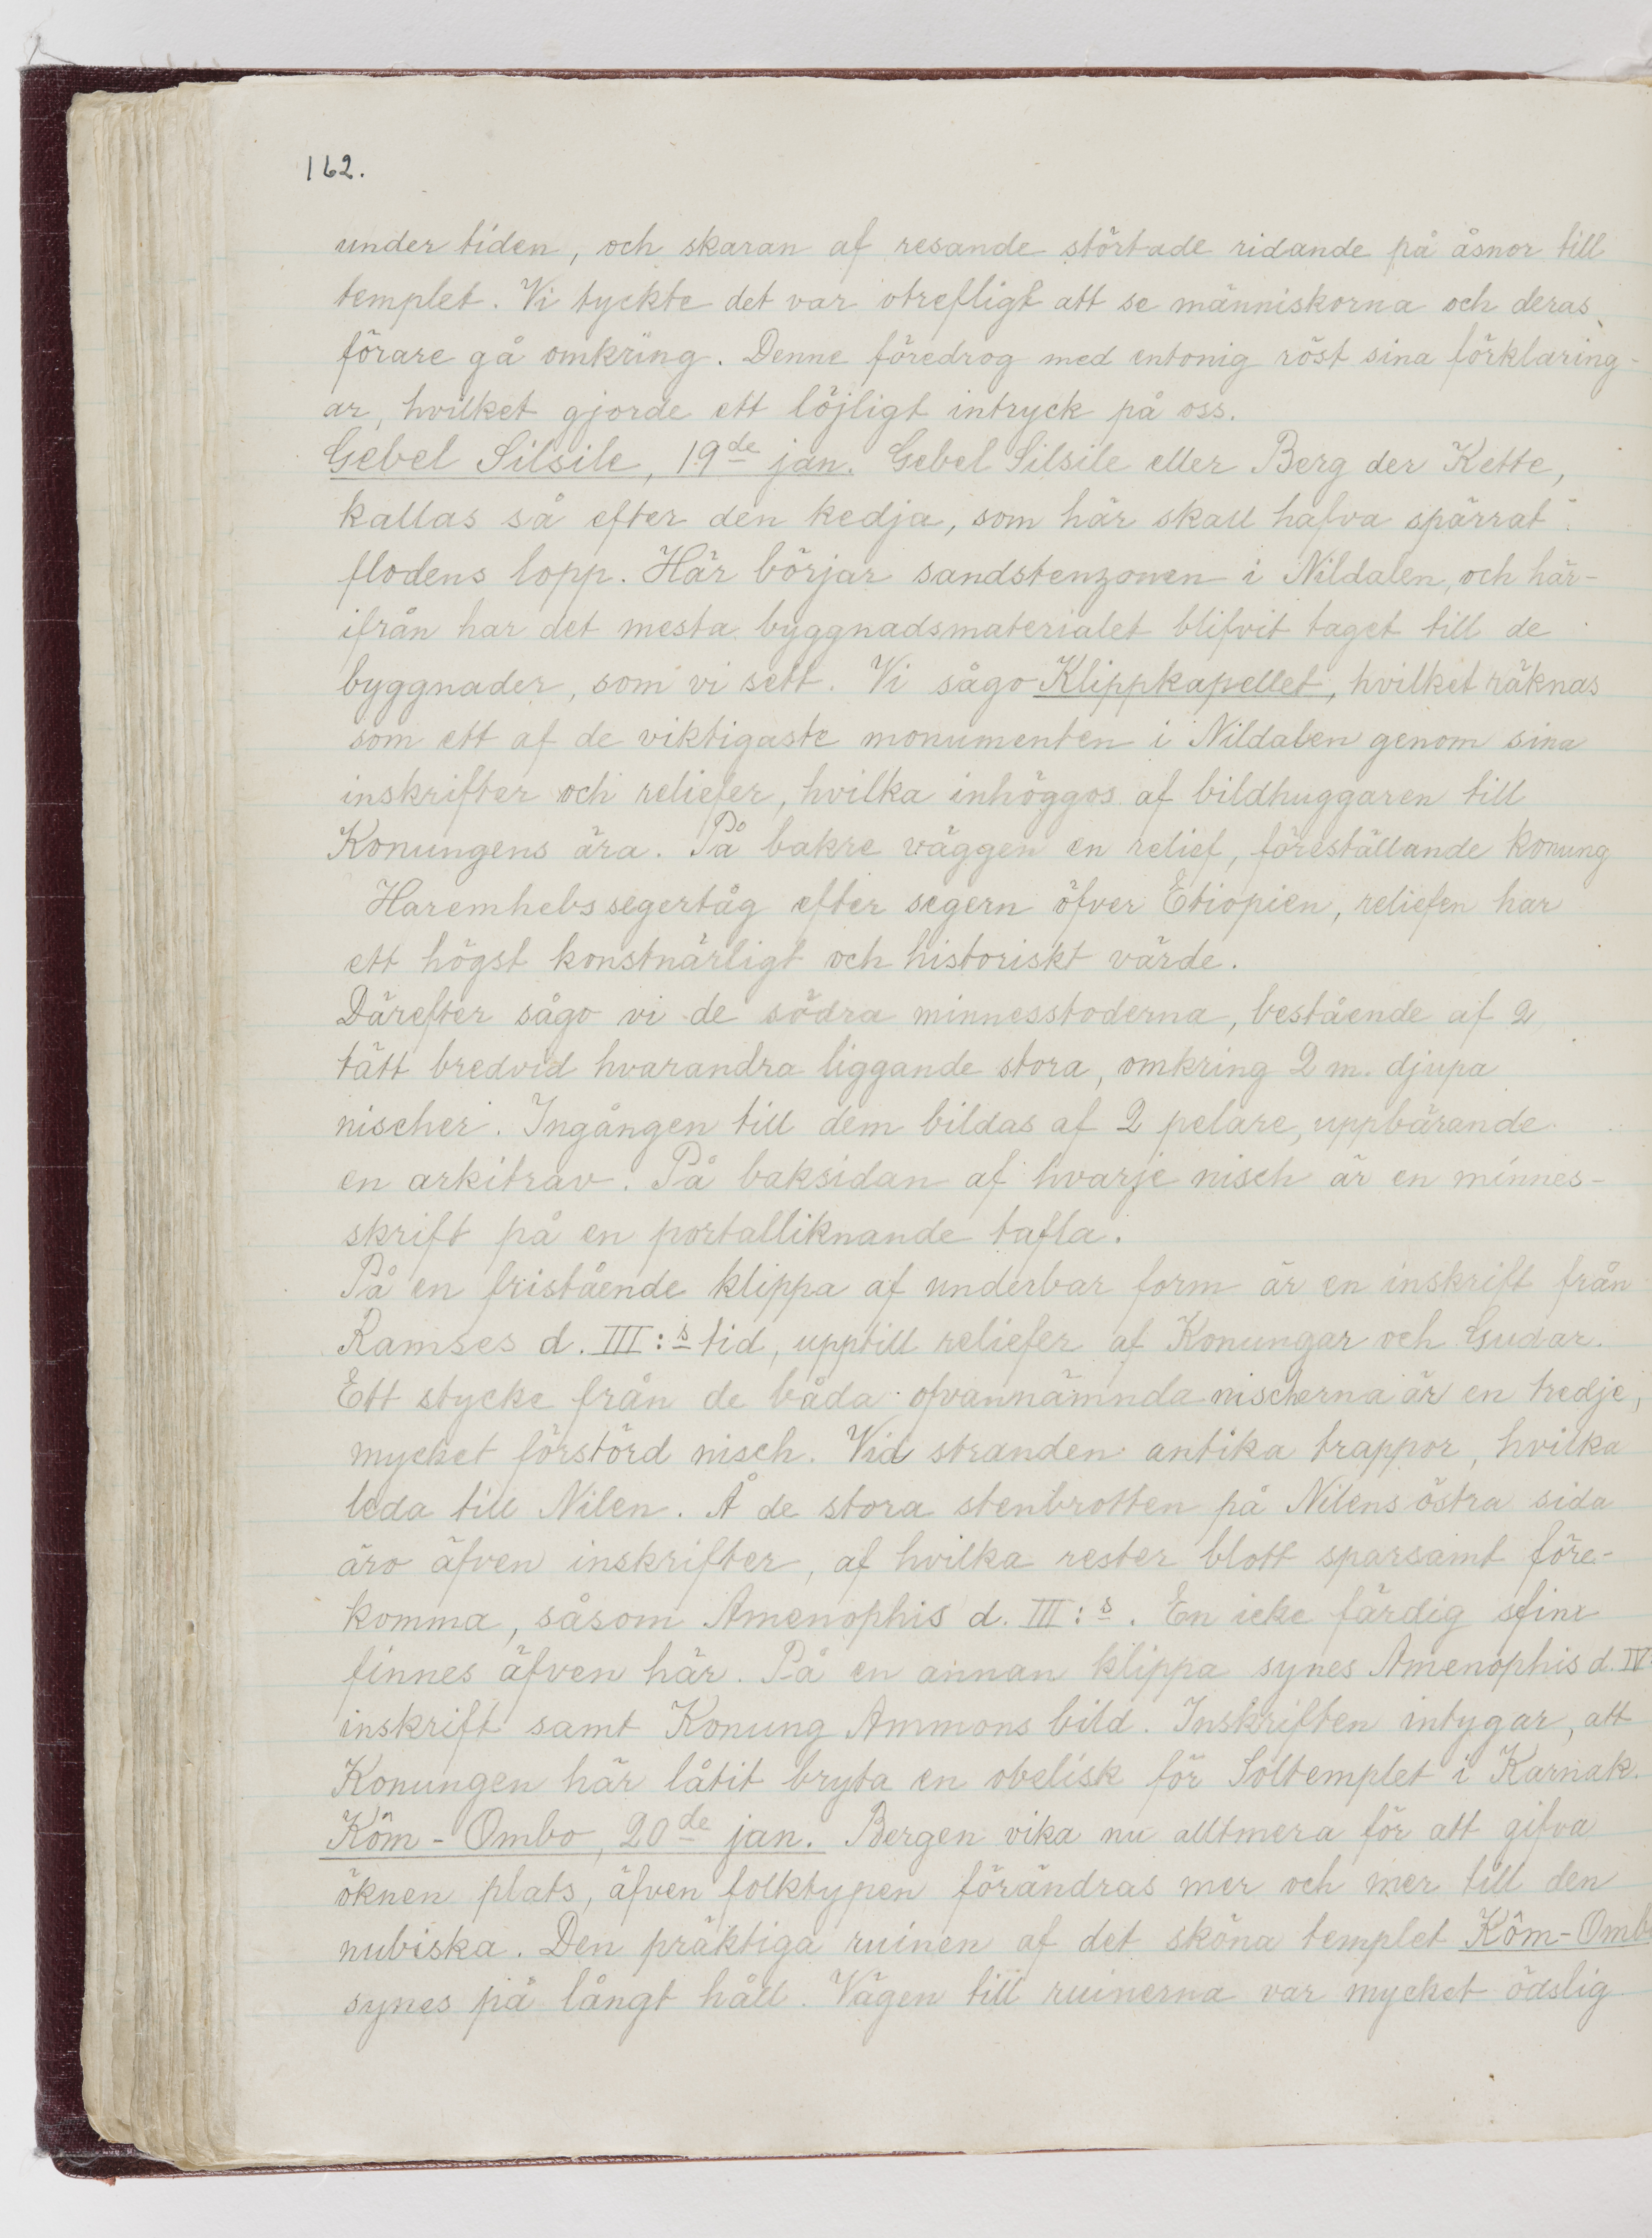 162.
under tiden, och skaran af resande störtade ridande på åsnor till
templet. Vi tyckte det var otrefligt att se människorna och deras
förare gå omkring. Denne föredrog med entonig röst sina förklaring-
ar, hvilket gjorde ett löjligt intryck på oss.
Gebel Silsile, 19de jan. Gebel Silsile eller Berg der Kette,
kallas så efter den kedja, som här skall hafva spärrat
flodens lopp. Här börjar sandstenzonen i Nildalen, och här-
ifrån har det mesta byggnadsmaterialet blifvit taget till de
byggnader, som vi sett. Vi sågo Klippkapellet, hvilket räknas
som ett af de viktigaste monumenten i Nildalen genom sina
inskrifter och reliefer, hvilka inhöggos af bildhuggaren till
Konungens ära. På bakre väggen en relief, föreställande konung
Haremhebs segertåg efter segern öfver Etiopien, reliefen har
ett högst konstnärligt och historiskt värde.
Därefter sågo vi de södra minnesstoderna, bestående af 2
tätt bredvid hvarandra liggande stora, omkring 2 m. djupa
nischer. Ingången till dem bildas af 2 pelare, uppbärande
en arkitrav. På baksidan af hvarje nisch är en minnes-
skrift på en portalliknande tafla.
På en fristående klippa af underbar form är en inskrift från
Ramses d. III:s tid, upptill reliefer af Konungar och Gudar.
Ett stycke från de båda ofvannämnda nischerna är en tredje,
mycket förstörd nisch. Vid stranden antika trappor, hvilka
leda till Nilen. Å de stora stenbrotten på Nilens östra sida
äro äfven inskrifter, af hvilka rester blott sparsamt före-
komma, såsom Amenophis d. III:s. En icke färdig sfinx
finnes äfven här. På en annan klippa synes Amenophis d. IV
inskrift samt Konung Ammons bild. Inskriften intygar, att
Konungen här låtit bryta en obelisk för Soltemplet i Karnak.
Kôm-Ombo, 20de jan. Bergen vika nu alltmera för att gifva
öknen plats, äfven folktypen förändras mer och mer till den
nubiska. Den präktiga ruinen af det sköna templet Kôm-Omb
synes på långt håll. Vägen till ruinerna var mycket ödslig